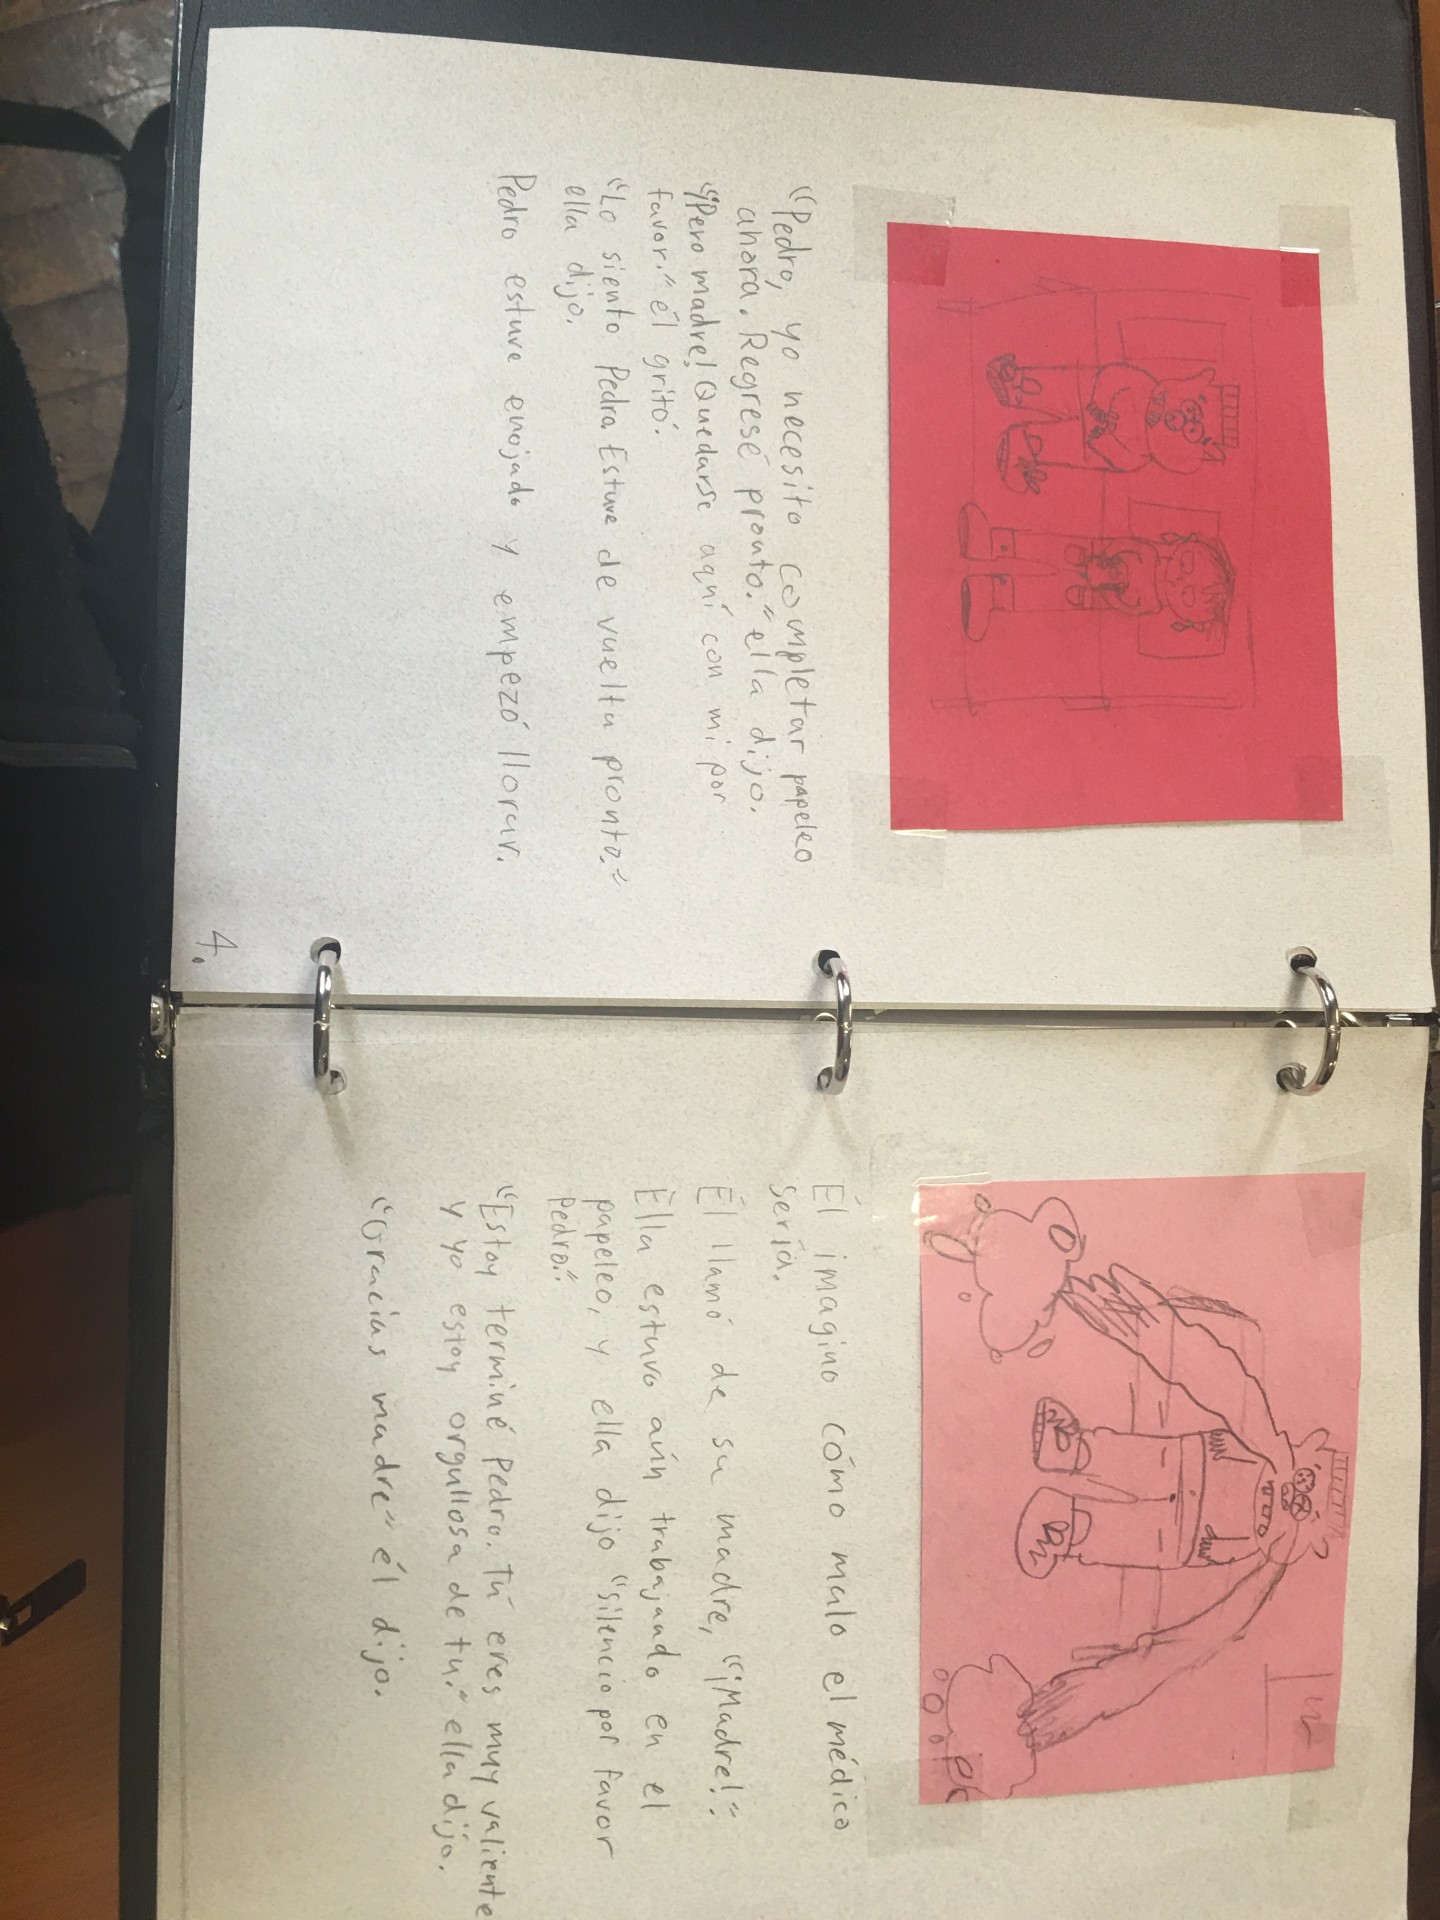 “Pedro, yo necesito completar papeleo
ahora. Regresé pronto.” ella dijo.
“¡Pero madre! Quedarse aquí con mi por
favor.” él gritó.
“Lo siento Pedro. Estuve de vuelta pronto.”
ella dijo.
Pedro estuve enojado y empezó llorar.
4.
Él imagino cómo malo el médico
sería.
Él llamó de su madre, “¡Madre!”.
Ella estuvo aún trabajando en el
papeleo, y ella dijo “silencio por favor
Pedro.”
“Estoy terminé Pedro. Tú eres muy valiente
y yo estoy orgullosa de tu.” ella dijo.
“Gracias madre” él dijo.